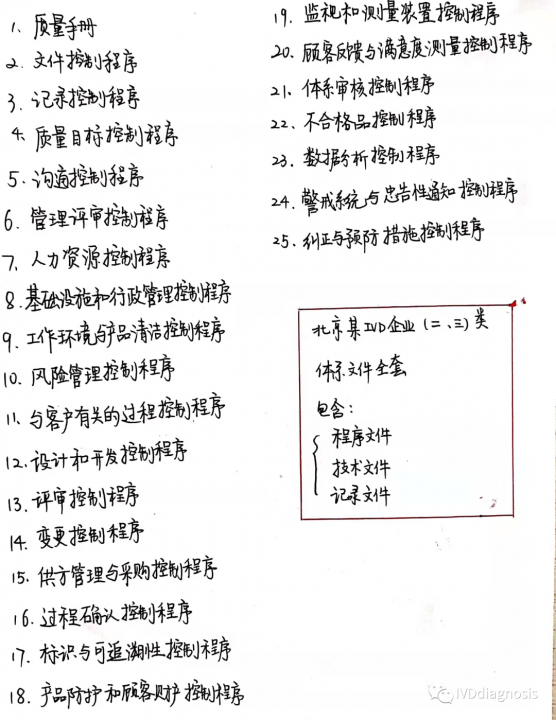 1. 质量手册
2. 文件控制程序
3. 记录控制程序
4. 质量目标控制程序
5. 沟通控制程序
6. 管理评审控制程序
7. 人力资源控制程序
8. 基础设施和行政管理控制程序
9. 工作环境与产品清洁控制程序
10. 风险管理控制程序
11. 与客户有关的过程控制程序
12. 设计和开发控制程序
13. 评审控制程序
14. 变更控制程序
15. 供方管理与采购控制程序
16. 过程确认控制程序
17. 标识与可追溯性控制程序
18. 产品防护和顾客财产控制程序
19. 监视和测量装置控制程序
20. 顾客反馈与满意度测量控制程序
21. 体系审核控制程序
22. 不合格品控制程序
23. 数据分析控制程序
24. 警戒系统与忠告性通知控制程序
25. 纠正与预防措施控制程序
北京某IVD企业(二、三)类
体系文件全套
包含:
程序文件
技术文件
记录文件
IVDdiagnosis